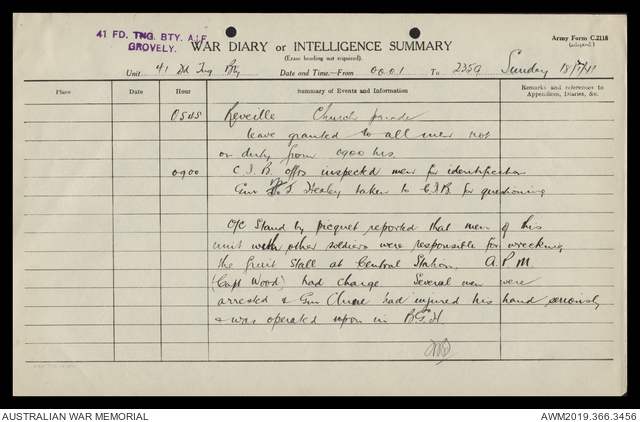 41 FD. TNG. BTY. A.I.F.
GROVELY.
WAR DIARY or INTELLIGENCE SUMMARY
(Erase heading not required).
Army Form C.2118
(adapted.)
Unit 41 Fd Tng Bty Date and Time.—From 0001 To 2359 Sunday
Place Date Hour Summary of Events and Information Remarks and references to Appendices, Diaries, &c.
0545 Reveille Church parade
leave granted to all men not
on duty from 0900 hrs.
0900 C.I.B. offrs inspected men for identification
Gnr J. Healey taken to C.I.B. for questioning
O/C Stand by picquet reported that men of this
unit with other soldiers were responsible for wrecking
the fruit stall at Central Station, A.P.M.
(Capt Wood) had charge Several men were
arrested & Gnr had injured his hand seriously
& was operated upon in B.G.H
AUSTRALIAN WAR MEMORIAL
AWM2019.366.3456